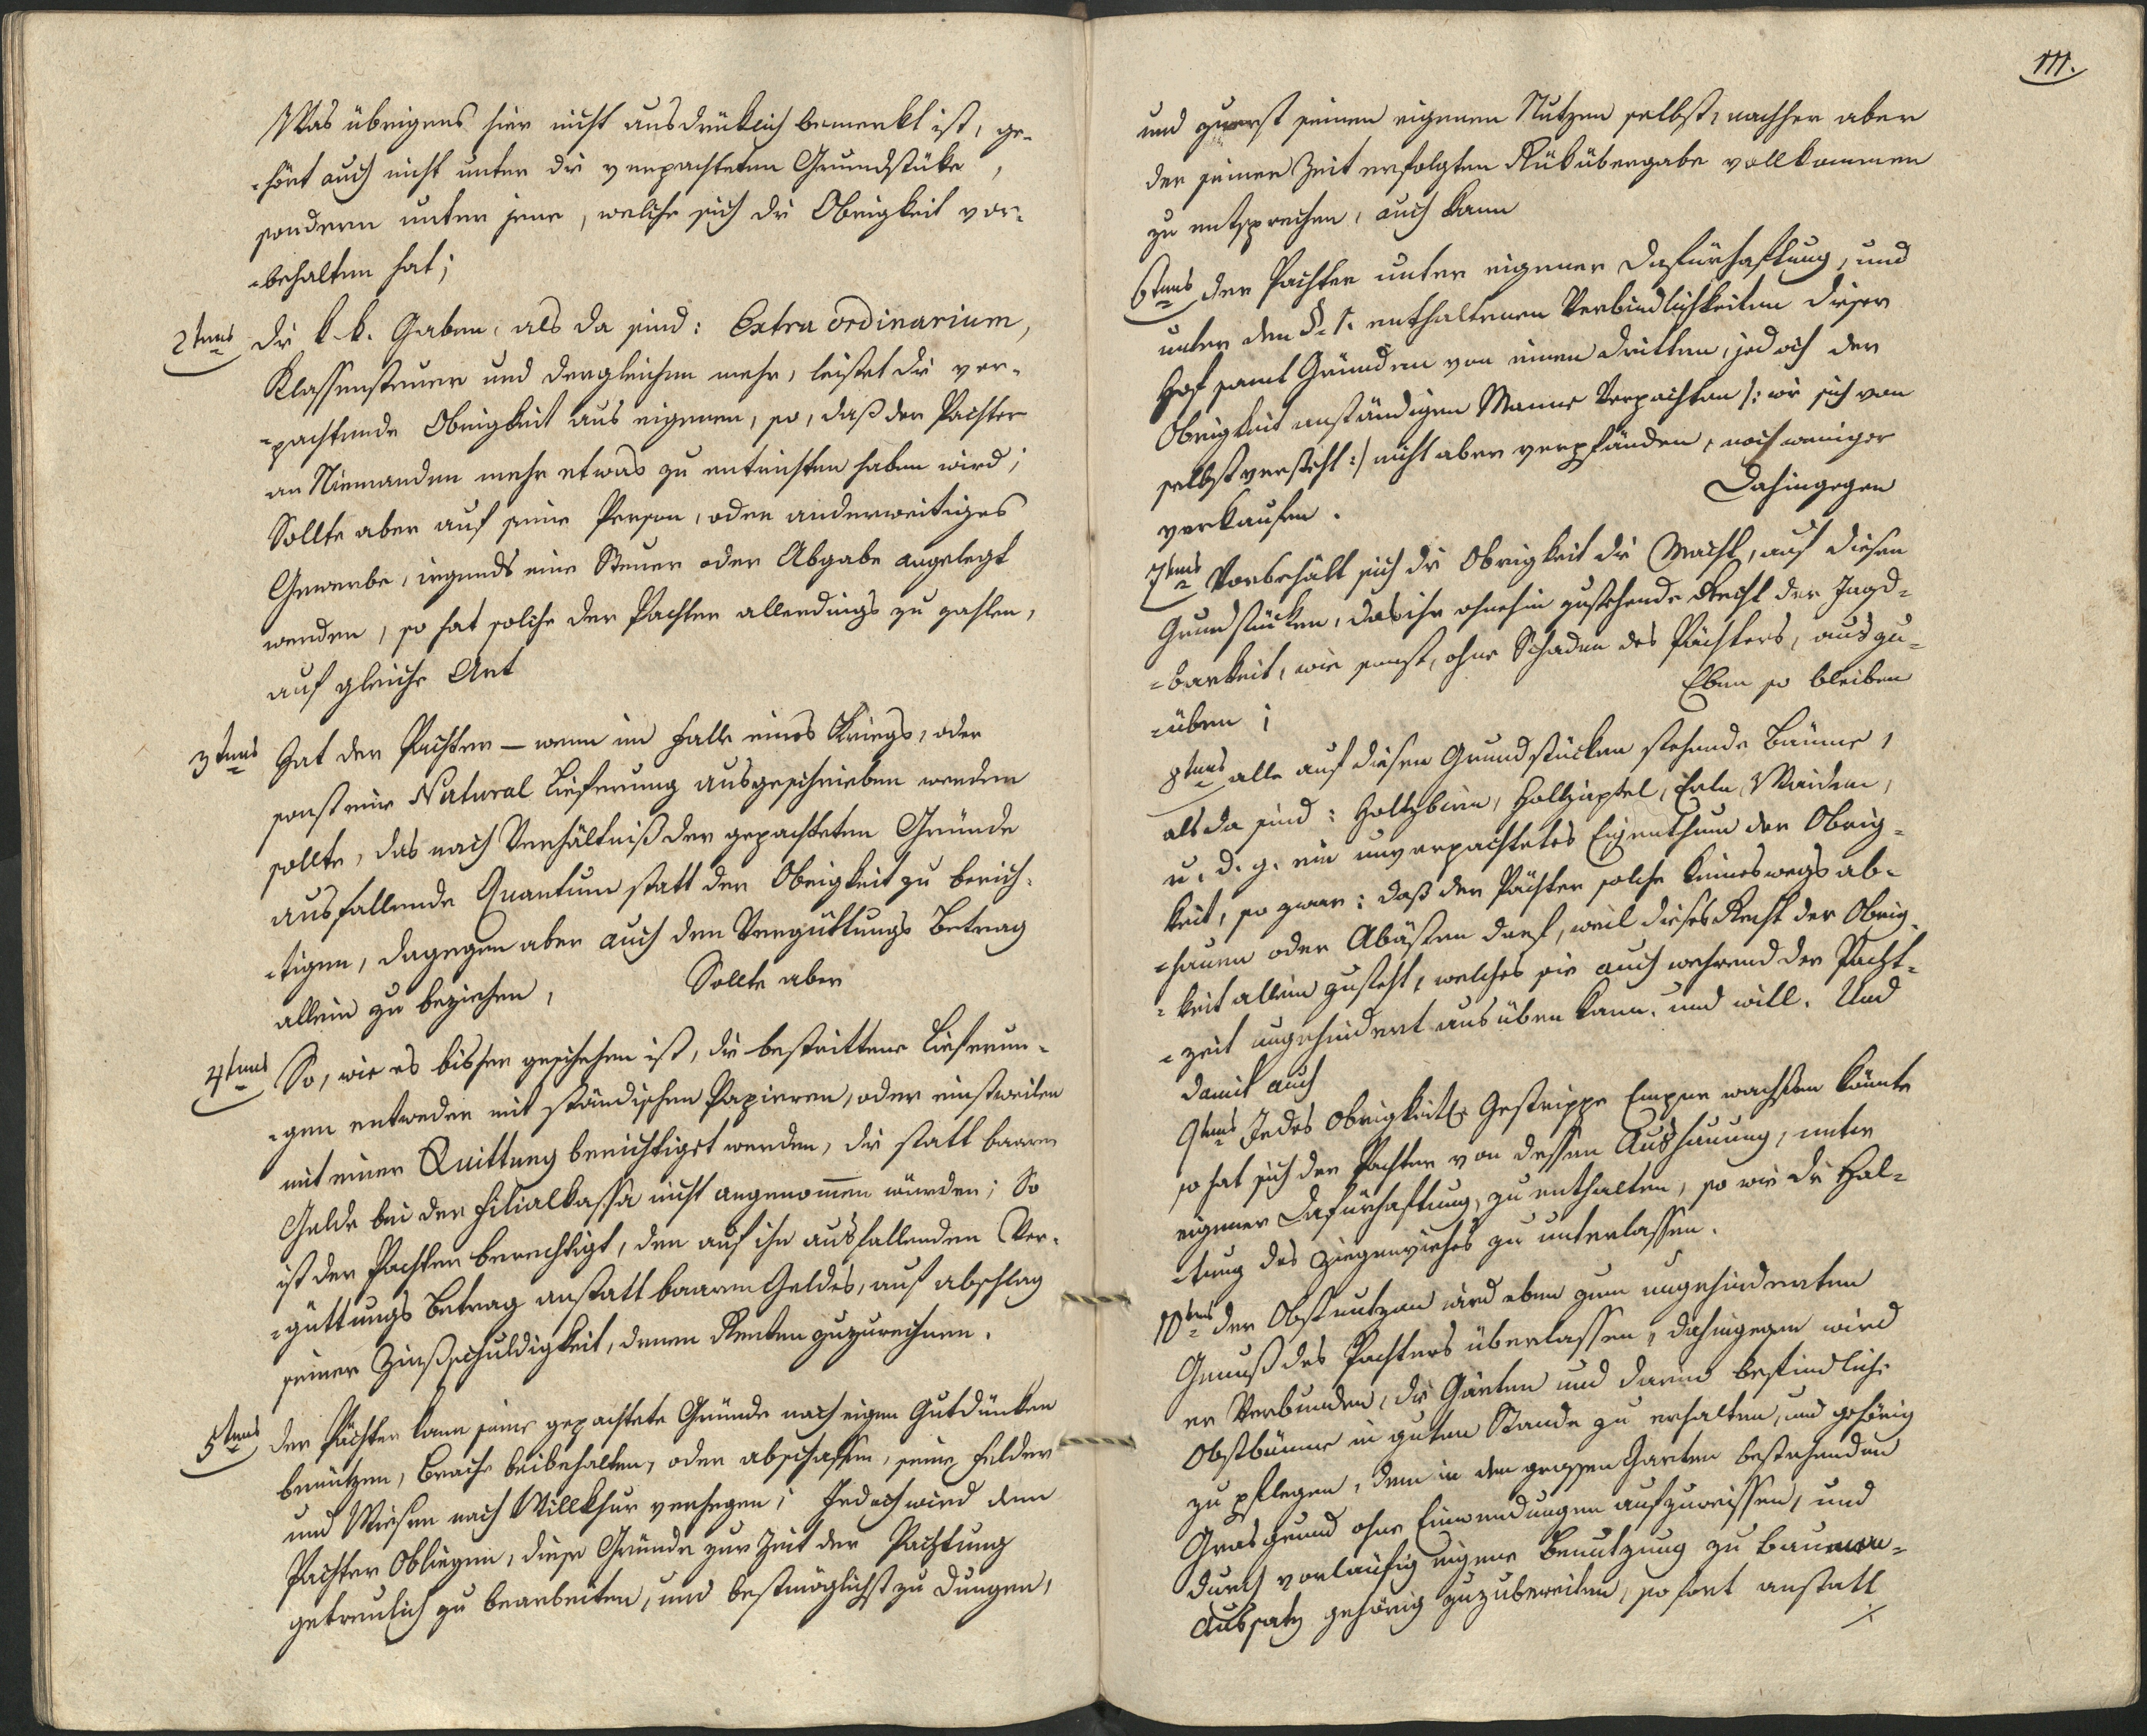 Was übrigens hier nicht ausdrüklich bemerkt ist, ge-
-hört auch nicht unter die verpachteten Grundstüke,
sondern unter jene, welche sich die Obrigkeit vor-
-behalten hat;
2tens Die k. k. Gaben, als da sind: Extra ordinarium,
Klassensteuer und dergleichen mehr, leistet die ver-
-pachtende Obrigkeit aus eigenen, so, daß der Pachter
an Niemanden mehr etwas zu entrichten haben wird;
Sollte aber auf seine Person, oder anderweitiges
Gewerbe, irgends eine Steuer oder Abgabe angelegt
werden, so hat solche der Pachter allerdings zu zahlen,
auf gleiche Art
3tens Hat der Pachter – wenn im Falle eines Kriegs, oder
sonst eine Natural Lieferung ausgeschrieben werden
sollte, das nach Verhältniß der gepachteten Gründe
ausfallende Quantum statt der Obrigkeit zu berich-
-tigen, dagegen aber auch den Vergüttungs Betrag
allein zu beziehen, Sollte aber
4tens So, wie es bisher geschehen ist, die bestrittene Lieferun-
-gen entweder mit ständischen Papieren, oder einstweilen
mit einer Quittung berichtiget werden, die statt baaren
Gelde bei der Filialkassa nicht angenom̅en würden; So
ist der Pachter berechtigt, den auf ihn ausfallenden Ver-
-güttungs Betrag anstatt baaren Geldes, auf Abschlag
seiner Zinsschuldigkeit, denen Renten zuzurechnen.
5tens Der Pächter kann seine gepachtete Gründe nach eigen Gutdünken
benützen, Brache beibehalten, oder abschaffen, seine Felder
und Wiesen nach Willkhur verhegen; Jedoch wird dem
Pachter Obliegen, diese Gründe zur Zeit der Pachtung
getreulich zu bearbeiten, und bestmöglichst zu dungen,
111.
und zuerst seinen eigenen Nutzen selbst, nachher aber
der seiner Zeit erfolgten Rükübergabe vollkommen
zu entsprechen, auch kann
6tens Der Pachter unter eigener Dafürhaftung, und
unter den §. 1. enthaltenen Verbindlichkeiten dieser
Hof samt Gründen von einen dritten, jedoch der
Obrigkeit anständigen Manne Verpachten /: wie sich von
selbst versteht :/ nicht aber verpfänden, noch weniger
verkaufen. Dahingegen
7tens Vorbehält sich die Obrigkeit die Macht, auf diesen
Grundstücken, das ihr ohnehin zustehende Recht der Jagd-
-barkeit, wie sonst, ohne Schaden des Pächters, auszu-
-üben; Eben so bleiben
8tens alle auf diesen Grundstücken stehende Bäume,
als da sind: Holtzbirn, Holtzäpfel, Erln, Weiden,
u. d. g. ein unverpachtetes Eigenthum der Obrig-
keit, so zwar: daß der Pächter solche keineswegs ab-
-hauen oder Abästen darf, weil dieses Recht der Obrig-
-keit allein zusteht, welches sie auch während der Pacht-
-zeit ungehindert ausüben kann, und will. Und
damit auch
9tens Jedes Obrigkeitl. Gestrippe Empor wachsen könnte
so hat sich der Pachter von dessen Aushauung, unter
eigener Dafürhaftung, zu enthalten, so wie die Hal-
-tung des Ziegenviehes zu unterlassen.
10tens Der Obstnutzen wird eben zum ungehinderten
Genuß des Pachters überlassen, dahingegen wird
er Verbunden, die Gärten und darin befindliche
Obstbäume in guten Stande zu erhalten, und gehörig
zu pflegen, dem in dem grossen Garten bestehenden
Grasgrund ohne Einwendungen aufzureissen, und
durch vorläufig eigene Benutzung zu Baumen-
Aussatz gehörig zuzubereiten, so fort anstatt